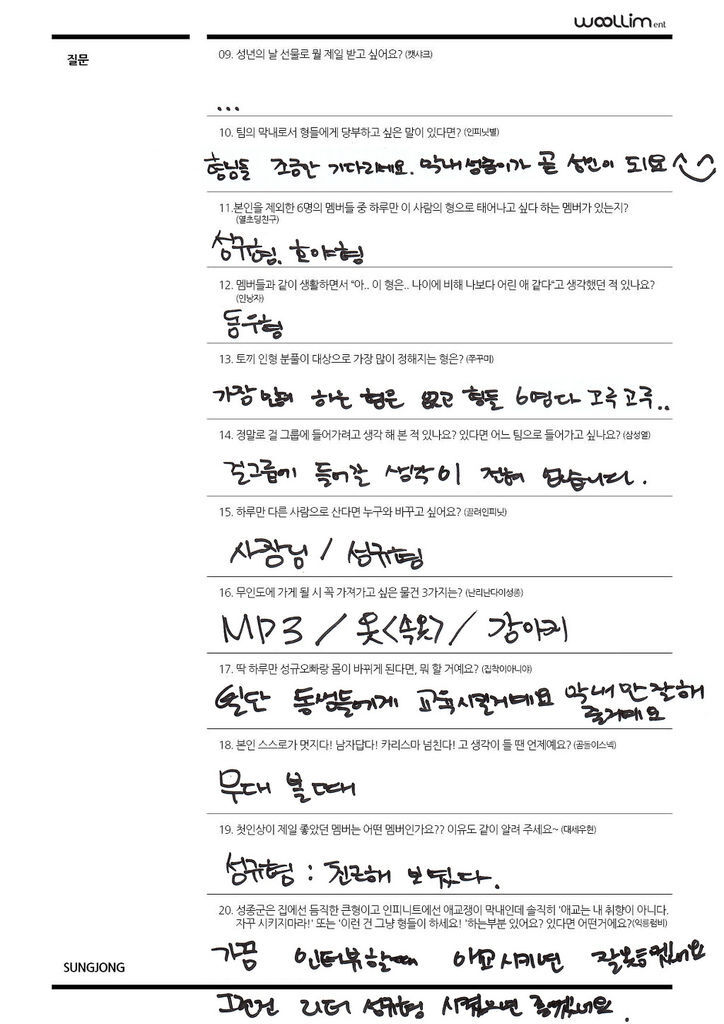 WOOLLIM ent
질문
09. 성년의 날 선물로 뭘 제일 받고 싶어요? (캣샤크)
...
10. 팀의 막내로서 형들에게 당부하고 싶은 말이 있다면? (인피닛별)
형님들 조금만 기다리세요. 막내성종이가 곧 성인이 되요 ^‿^
11.본인을 제외한 6명의 멤버들 중 하루만 이 사람의 형으로 태어나고 싶다 하는 멤버가 있는지?
(열초딩친구)
성규형, 호야형
12. 멤버들과 같이 생활하면서 "아.. 이 형은.. 나이에 비해 나보다 어린 애 같다"고 생각했던 적 있나요?
(인낭자)
동우형
13. 토끼 인형 분풀이 대상으로 가장 많이 정해지는 형은? (쭈꾸미)
가장 많이 하는 형은 없고 형들 6명다 고루고루..
14. 정말로 걸 그룹에 들어가려고 생각 해 본 적 있나요? 있다면 어느 팀으로 들어가고 싶나요? (삼성열)
걸그룹에 들어갈 생각이 전혀 없습니다.
15. 하루만 다른 사람으로 산다면 누구와 바꾸고 싶어요? (끌려인피닛)
사장님 / 성규형
16. 무인도에 가게 될 시 꼭 가져가고 싶은 물건 3가지는? (난리난다이성종)
MP3 / 옷<속옷> / 강아지
17. 딱 하루만 성규오빠랑 몸이 바뀌게 된다면, 뭐 할 거예요? (집착이아니야)
일단 동생들에게 교육시킬거예요 막내만잘해
줄거예요
18. 본인 스스로가 멋지다! 남자답다! 카리스마 넘친다! 고 생각이 들 땐 언제예요? (곰돌이스넥)
무대 볼 때
19. 첫인상이 제일 좋았던 멤버는 어떤 멤버인가요?? 이유도 같이 알려 주세요~ (대세우현)
성규형 : 친근해 보였다.
20. 성종군은 집에선 듬직한 큰형이고 인피니트에선 애교쟁이 막내인데 솔직히 '애교는 내 취향이 아니다.
자꾸 시키지마라!' 또는 '이런 건 그냥 형들이 하세요! '하는부분 있어요? 있다면 어떤거에요?(익뜨럼비)
가끔 인터뷰할때 애교시키면 잘못하겠네요
SUNGJONG
그런건 리더 성규형 시켰으면 좋겠네요.